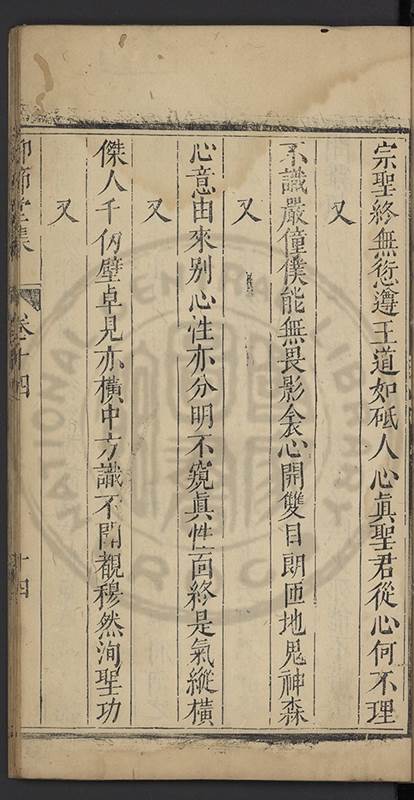 宗聖終無愆遵王道如砥人心真聖君從心何不理
又
不識嚴僮僕能無畏影衾心開雙目朗匝地鬼神森
又
心意由來别心性亦分明不窺真性面終是氣縱橫
又
傑人千仞壁卓見亦橫中方識不聞覩穆然洵聖功
又
集
卷十四
十四